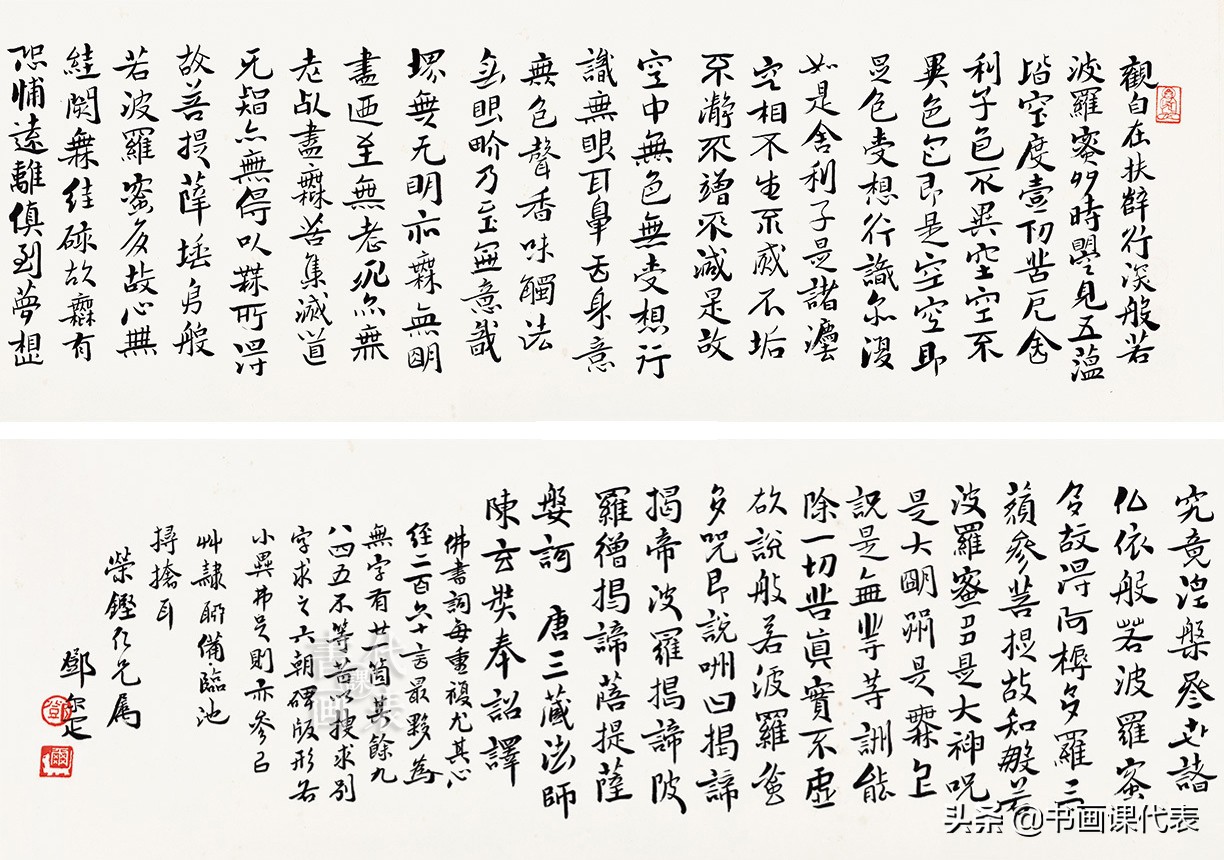 觀自在扶薛行深般若
波羅蜜多時瞾見五蘊
皆空度壹切苦厄舍
利子色不異空空不
異色色即是空空即
是色受想行識亦復
如是舍利子是諸灋
空相不生不滅不垢
不瀞不增不減是故
空中無色無受想行
識無眼耳鼻舌身意
無色聲香味觸法
無眼界乃至無意識
堺無无明亦無無明
盡迺至無老死亦無
老死盡無苦集滅道
无智亦無得以無所得
故菩提薩埵為般
若波羅蜜多故心無
絓閡無絓礙故無有
恐怖遠離傎到夢想
究竟涅槃叄世諸
仏依般若波羅蜜
多故得阿耨多羅三
藐參菩提故知般若
波羅蜜多是大神呪
是大明呪是無上
呪是無等等詶能
除一切苦真實不虛
故說般若波羅蜜
多咒即說呪曰揭諦
揭帝波羅揭諦波
羅僧揭諦菩提薩
婆訶 唐三藏法師
陳玄奘奉詔譯
佛書詞每重複尤其心
經二百六十言最夥為
無字有廿一箇其餘九
八四五不等苦以搜求別
字求之六朝碑版形若
小異弗是則亦參已
艸隸聊備臨池
撏撦耳
榮鏗仁兄屬
鄧尔疋
头条 @书画课代表